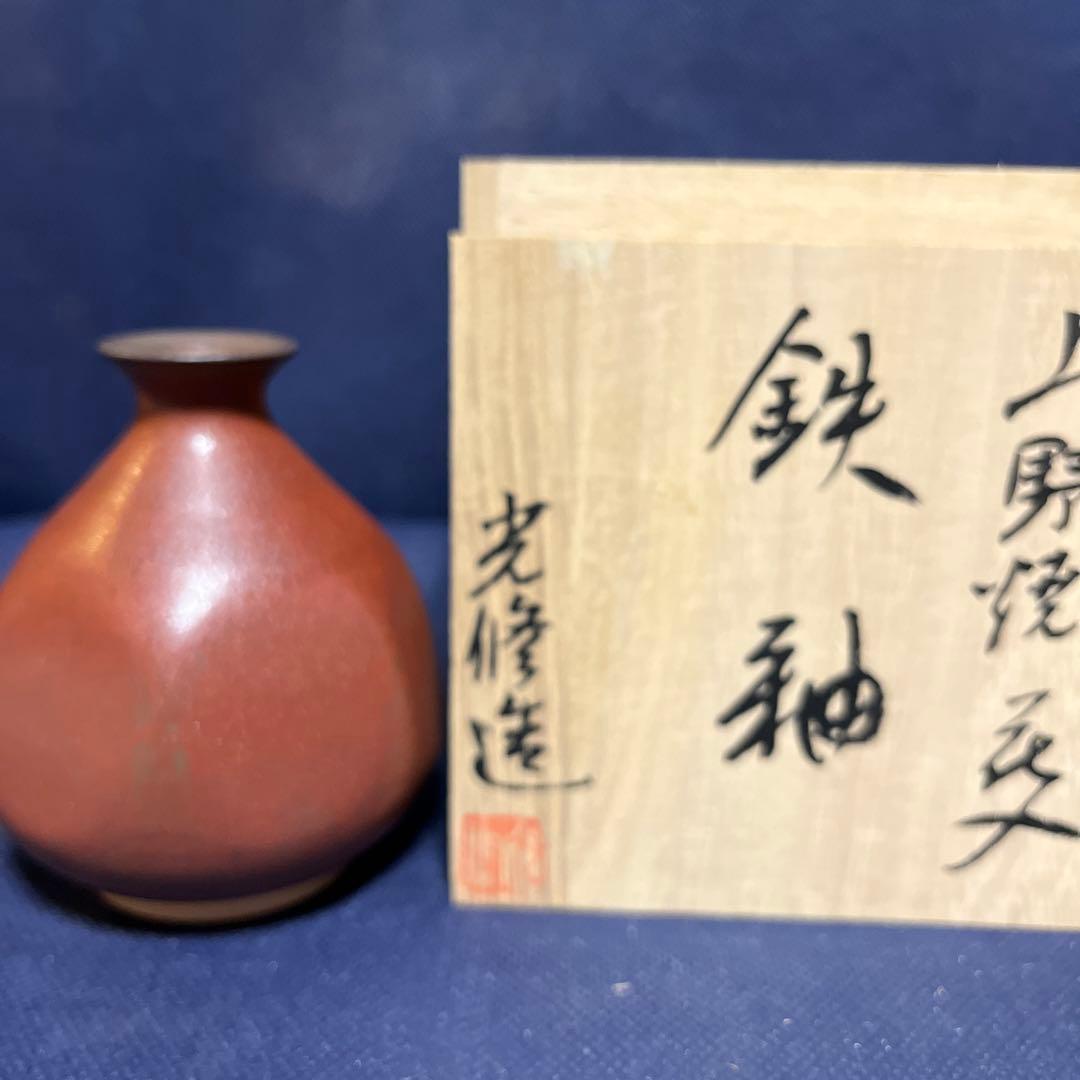 上野焼花入
鉄釉
光修造